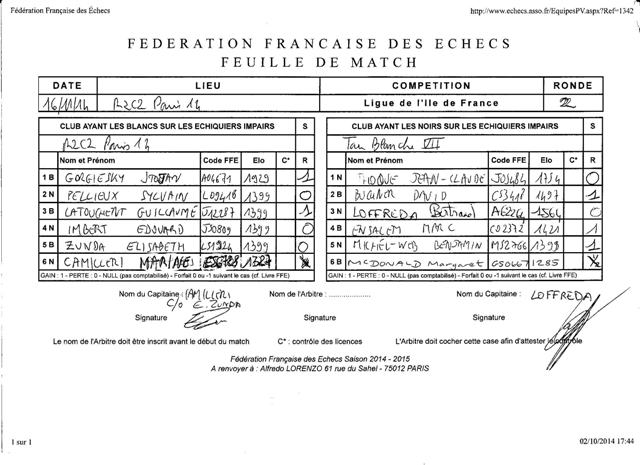 Fédération Française des Échecs
http://www.echecs.asso.fr/EquipesPV.aspx?Ref=1342
FEDERATION FRANCAISE DES ECHECS
FEUILLE DE MATCH
DATE LIEU COMPETITION RONDE
16/11/14 R2C2 Paris 14 Ligue de l'Ile de France 2
CLUB AYANT LES BLANCS SUR LES ECHIQUIERS IMPAIRS S CLUB AYANT LES NOIRS SUR LES ECHIQUIERS IMPAIRS S
R2C2 Paris 14 Tour Blanche VII
Nom et Prénom Code FFE Elo C* R Nom et Prénom Code FFE Elo C* R
1 B STOJAN A04671 1929 1 1 N JEAN-CLAUDE J05484 1754 0
2 N PELLIEUX SYLVAIN L09418 1399 0 2 B DAVID 1497 1
3 B GUILLAUME 1399 1 3 N LOFFREDA Bertrand 1564 0
4 N IMBERT EDOUARD J70809 1399 0 4 B ENSALEM MARC C02372 1421 1
5 B ZUNDA ELISABETH L51924 1399 0 5 N MICHEL-WEB BENJAMIN M52766 1398 1
6 N CAMILLERI 1327 6 B MCDONALD Margaret G50667 1285
GAIN : 1 - PERTE : 0 - NULL (pas comptabilisé) - Forfait 0 ou -1 suivant le cas (cf. Livre FFE) GAIN : 1 - PERTE : 0 - NULL (pas comptabilisé) - Forfait 0 ou -1 suivant le cas (cf. Livre FFE)
Nom du Capitaine : CAMILLERI Nom de l'Arbitre : ...................... Nom du Capitaine : LOFFREDA
C/O E. ZUNDA
Signature Signature Signature
Le nom de l'Arbitre doit être inscrit avant le début du match C* : contrôle des licences L'Arbitre doit cocher cette case afin d'attester le contrôle
Fédération Française des Echecs Saison 2014 - 2015
A renvoyer à : Alfredo LORENZO 61 rue du Sahel - 75012 PARIS
1 sur 1
02/10/2014 17:44